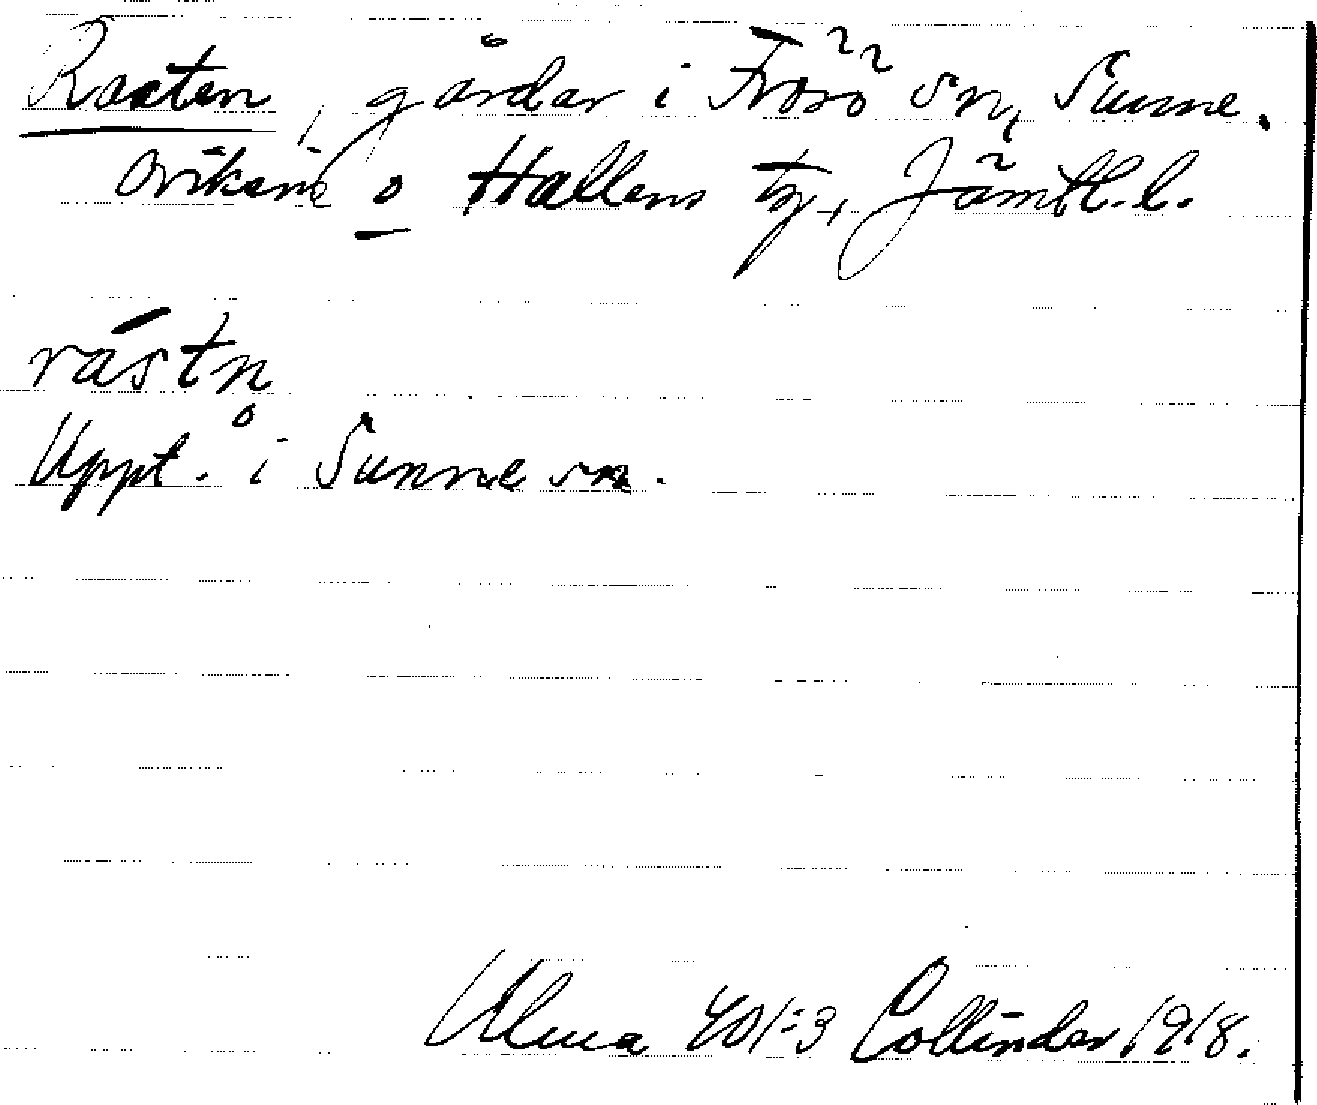 Rasten, gårdar i Frösö sn, Sunne.
Ovikens o Hallens tg, Jämtl. l.
råstn
Uppt. i Sunne sn.
Ulma 401:3 Collinder 1918.